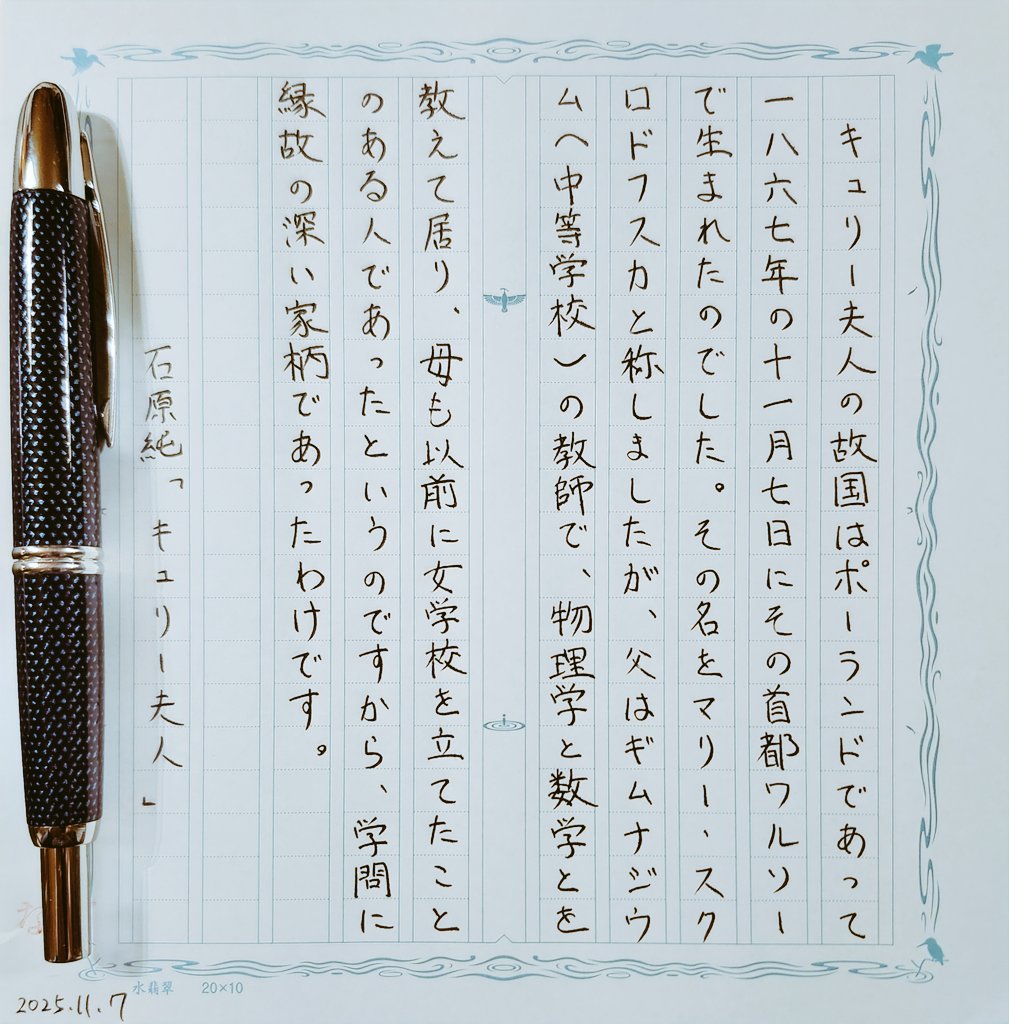 キュリー夫人の故国はポーランドであって
一八六七年の十一月七日にその首都ワルソー
で生まれたのでした。その名をマリー・スク
ロドフスカと称しましたが、父はギムナジウ
ム(中等学校)の教師で、物理学と数学とを
教えて居り、母も以前に女学校を立てたこと
のある人であったというのですから、学問に
縁故の深い家柄であったわけです。
石原純「キュリー夫人」
水翡翠 20×10
2025.11.7